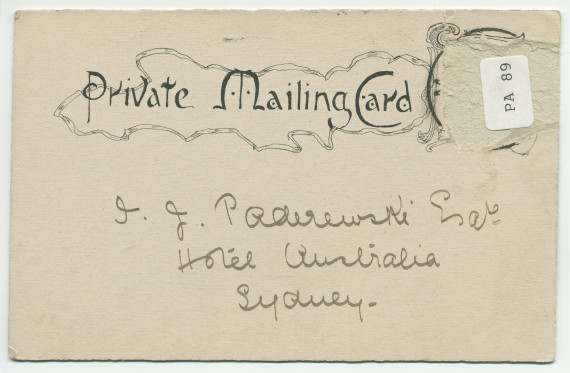 Private Mailing Card
PA 89
I. J. Paderewski Esqre
Hotel Australia
Sydney.